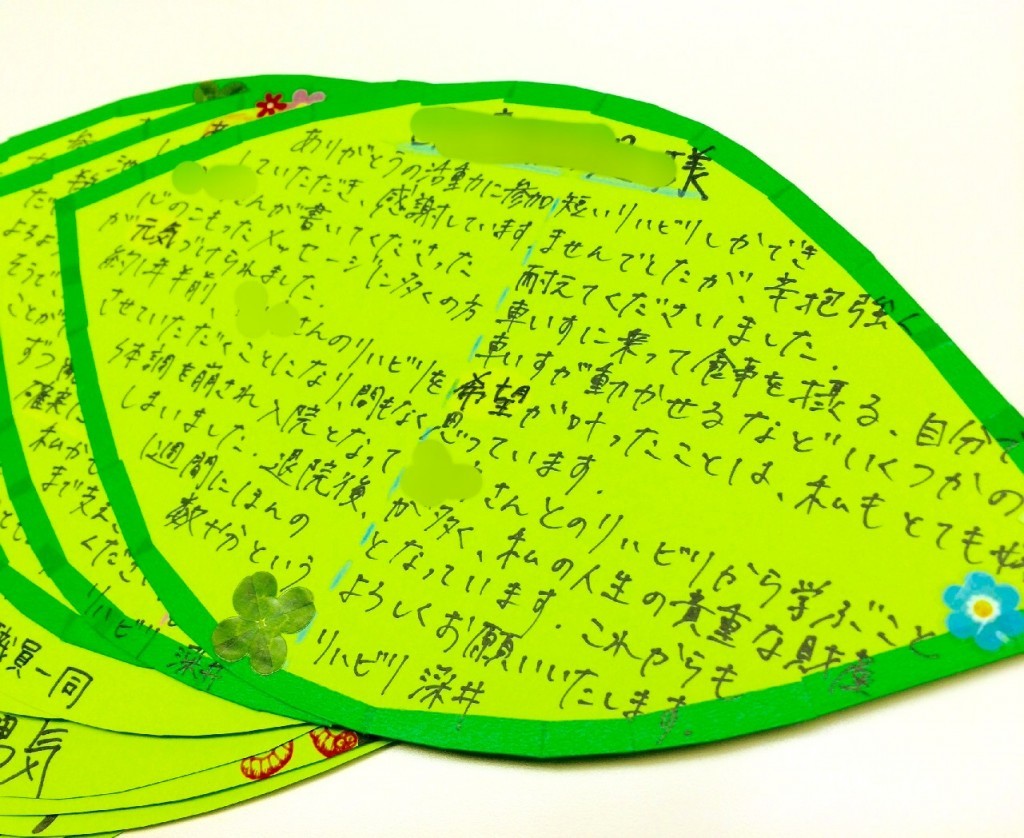 様
ありがとうの活動に参加
していただき、感謝しています
さんが書いてくださった
心のこもったメッセージに多くの方
が元気づけられました。
約1年半前、さんのリハビリを
させていただくことになり、間もなく
体調を崩され入院となって
しまいました。退院後、
1週間にほんの
数十分という
短いリハビリしかでき
ませんでしたが、辛抱強く
耐えてくださいました。
車いすに乗って食事を摂る、自分で
車いすが動かせるなどいくつかの
希望が叶ったことは、私もとても
思っています。
さんとのリハビリから学ぶこと
が多く、私の人生の貴重な財産
となっています。これからも
よろしくお願いいたします。
リハビリ 深井
ことが
ずつ
確実に
私がで
まで支え
くださ
リハビリ
深井
員一同